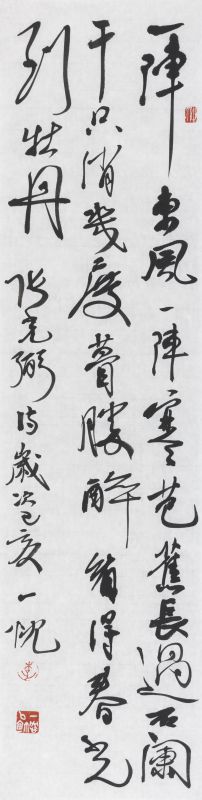 一陣東風一陣寒芭蕉長過石闌
干只消幾度瞢騰醉看得春光
到牡丹 張光弼詩歲次己亥一